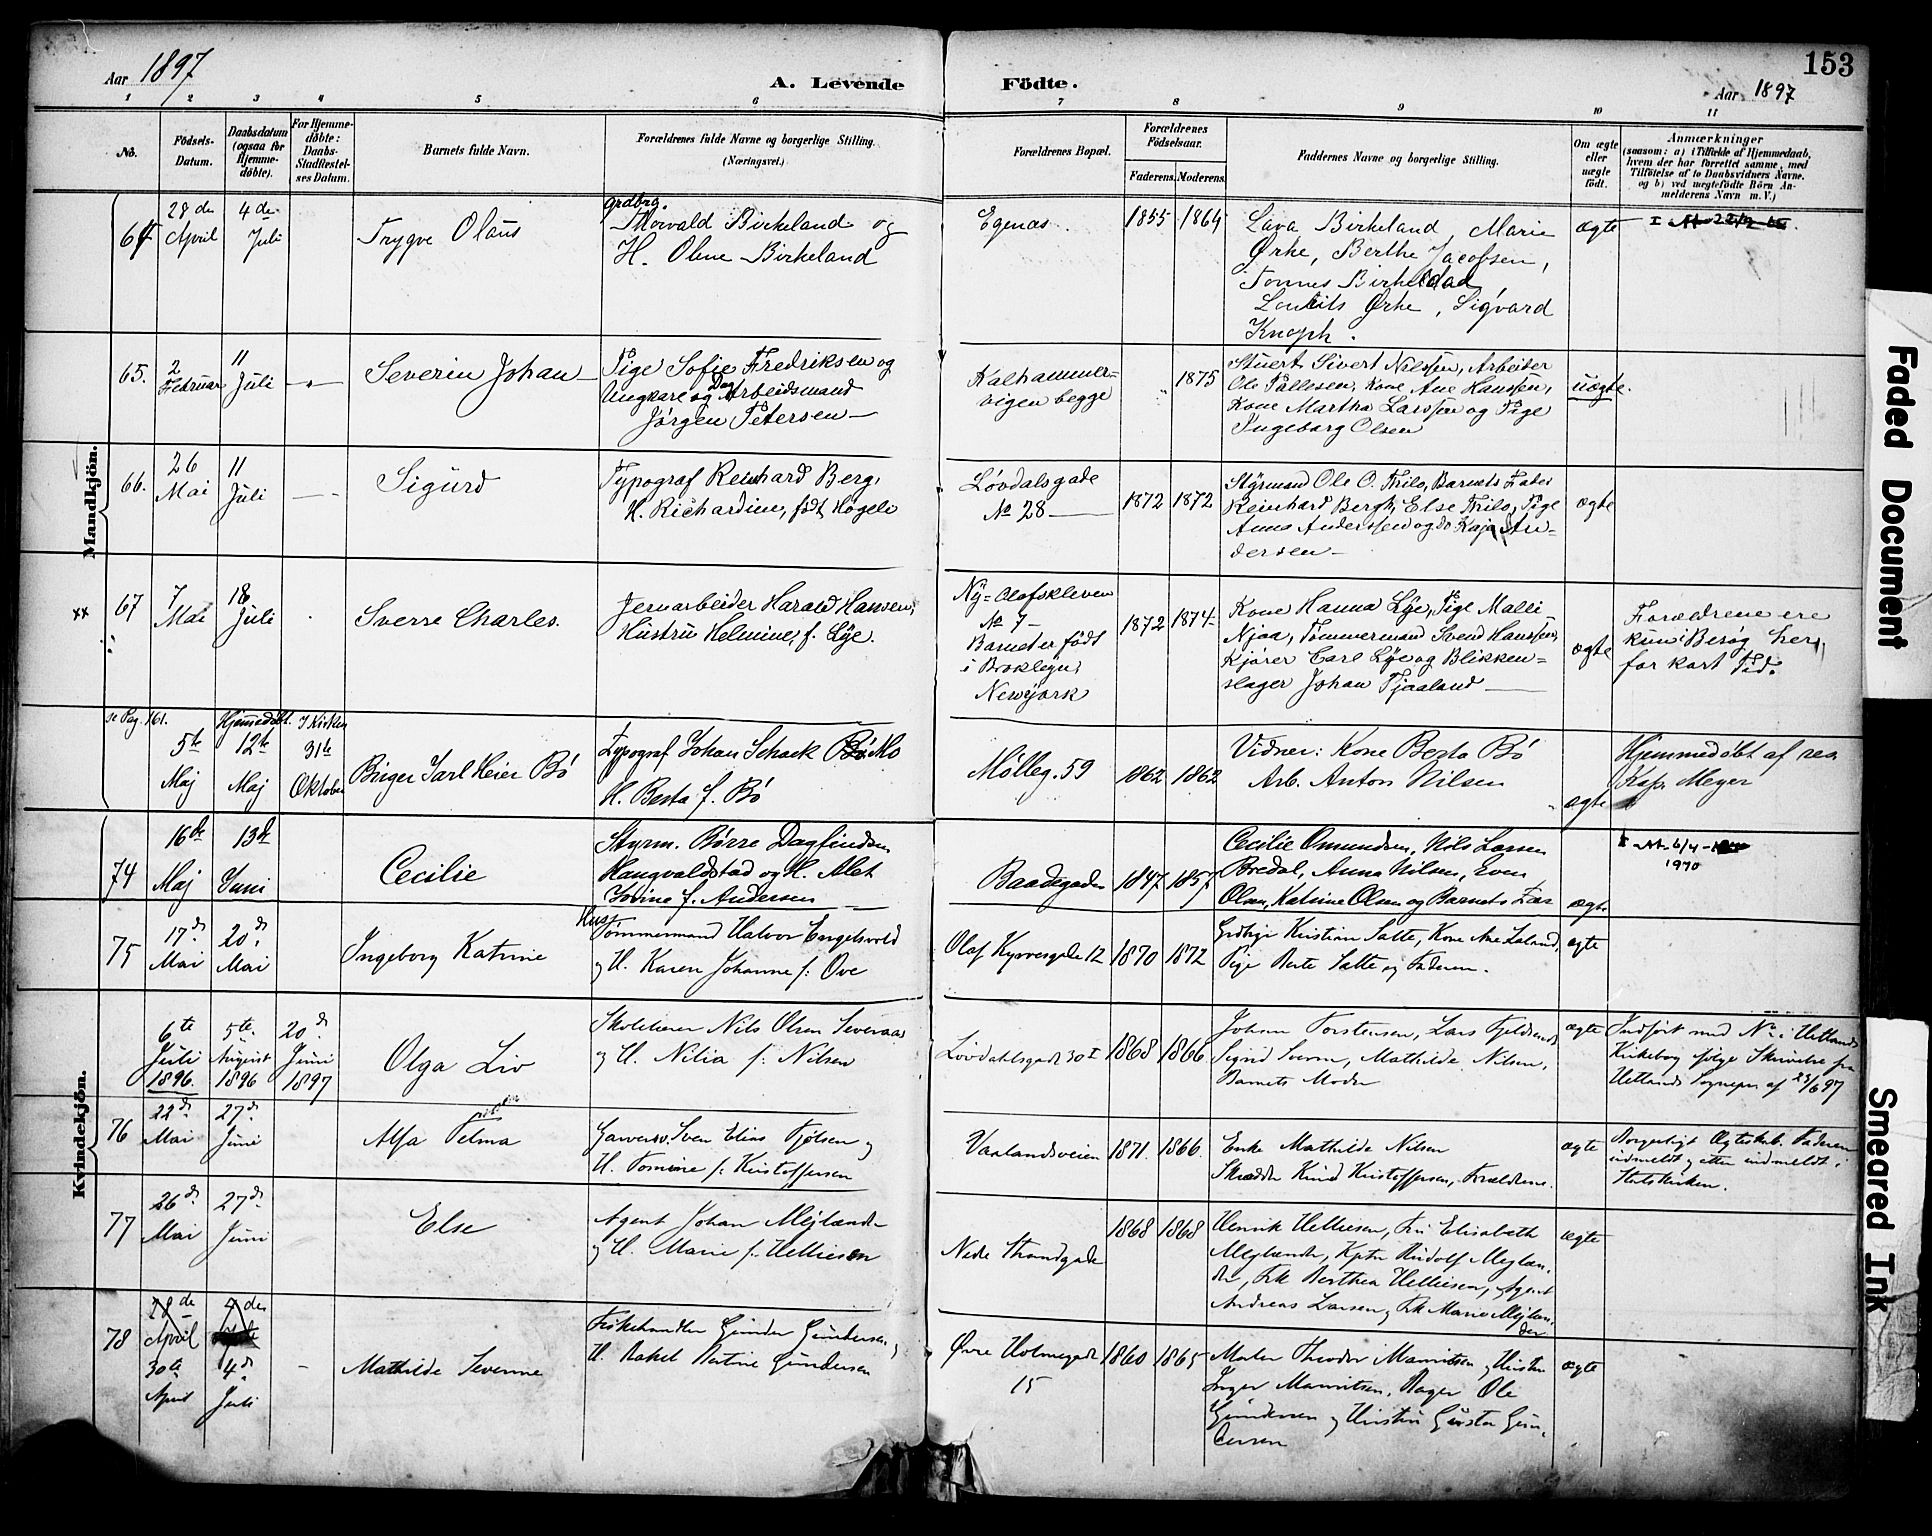 153
Aar 1897
A. Levende Födte.
Aar 1897
1 2 3 4 5 6 7 8 9 10 11
No.
Födsels-Datum.
Daabsdatum (ogsaa for Hjemme-döbte).
For Hjemme-döbte: Daabs-Stadfæstel-ses Datum.
Barnets fulde Navn.
Forældrenes fulde Navne og borgerlige Stilling. (Næringsvei.)
Forældrenes Bopæl.
Forældrenes Födselsaar.
Faderens. Moderens.
Faddernes Navne og borgerlige Stilling.
Om ægte eller uægte födt.
Anmærkninger
(saasom: a) i Tilfælde af Hjemmedaab,
hvem der har forrettet samme, med
Tilföielse af to Daabsvidners Navne.
og b) ved uægtefödte Börn An-
melderens Navn m. V.)
Mandkjön.
64
28 de April
4 de Juli
Trygve Olaus
grdbrg.
Thorvald Birkeland og
H. Oline Birkeland
Egenæs.
1855 1864
Lava Birkeland, Marie
Ørke, Berthe Jacobsen,
Tonnes Birkeland
Ørke, Sigvard
Knoph.
ægte
65.
2 Februar
11 Juli
Severin Johan
Pige Sofie Fredriksen og
Ungkarl og Dagarbeidsmand
Jørgen Petersen
Kalhammer=
vigen begge
" 1875
Stuert Sivert Nilssen, Arbeider
Ole Tallesen, Kone Ane Hanssen,
Kone Martha Larssen og Pige
Ingeborg Olsen
uægte.
66.
26 Mai
11 Juli
Sigurd
Typograf Reinhard Berg,
H. Richardine, født Høgeli
Løvdalsgade
No 28
1872 1872
Styrmand Ole O. Friło, Barnets Fader
Reinhard Bergh, Else Frilo, Pige
Anna Anderssen og do Kaja An=
dersen
ægte
xx 67
7 Mai
18 Juli
Sverre Charles.
Jernarbeider Harald Hansen,
Hustru Helmine, f. Lye.
Ny=Olafskleven
No 7
Barnet er født
i Brooklyn,
Newyork
1872 1874
Kone Hanna Lye, Pige Malli
Njaa, Tømmermand Svend Hanssen,
Kjører Carl Lye og Blikken=
slager Johan Tjaaland
ægte
Forældrene ere
kun i Besøg her,
for kort Tid.
se Pag. 161.
5te Maj
Hjemmedøbt.
12te Maj
I Kirken
31te Oktober
Birger Jarl Heier Bö
Typograf Johan Schack Bö Mo
H. Berta f. Bö
Mølleg. 59
1862 1862
Vidner: Kone Berta Bö
Arb. Anton Nilsen
ægte
Hjemmedøbt af res
Kap. Meyer
Kvindekjön.
74
16de Maj
13de Juni
Cecilie
Styrm. Børre Dagfindsen
Haugvaldstad og H. Alet
Jovine f. Andersen
Baadegaden
1847 1857
Cecilie Omundsen, Nils Larsen
Bredal, Anna Nilsen, Even
Olsen, Katrine Olsen og Barnets Far
ægte
1970
75
17de Mai
20de Mai
Ingeborg Katrine
Hus
Tømmermand Halvor Engelsvold
og H. Karen Johanne f. Ove
Olaf Kyrresgade 12
1870 1872
Kristian Satte, Kone Ane Laland,
Pige Berte Satte og Faderen.
ægte
6te Juli 1896.
5te August 1896
20de Juni 1897
Olga Liv
Skolelærer Nils Olsen Severaas
og H. Nilia f. Nilsen
Løvdahlsgade 30 I
1868 1866
Johan Torstensen, Lars Fjeldsend
Sigrid, Mathilde Nilsen,
Barnets Moder
ægte
Indført med No i Hetlands
Kirkebog ifølge Skrivelse fra
Hetlands Sognepr. af 23/6 97
76
22de Mai
27de Juni
Alfa Telma
Garversv. Sven Elias Fjølsen og
H. Tomine f. Kristoffersen
Vaalandsveien
1871 1866
Enke Mathilde Nilsen
Skrædder Knud Kristoffersen, Forældrene.
ægte
Borgerligt Ægteskab. Faderen
udmeldt og etter indmeldt i
Statskirken.
77
26de Mai
27de Juni
Else
Agent Johan Mejlænde
og H. Marie f. Helliesen
Nedre Strandgade
1868 1868
Henrik Helliesen, Fru Elisabeth
Mejlænder, Kptn Rudolf Mejlæn-
der, Frk Berthea Helliesen, Agent
Andreas Larsen og Frk Marie Mejlæn-
der
ægte
78
28de April
4de
30te April
4de Juli
Mathilde Severine
Fiskehandler Gunder Gundersen,
H. Rakel Bertine Gundersen
Øvre Holmegade
15
1860 1865
Maler Theodor Mauritsen og Hustru
Inger Mauritsen, Bager Ole
Gundersen og Hustru Gusta Gun-
dersen
ægte
Faded Document
Smeared Ink